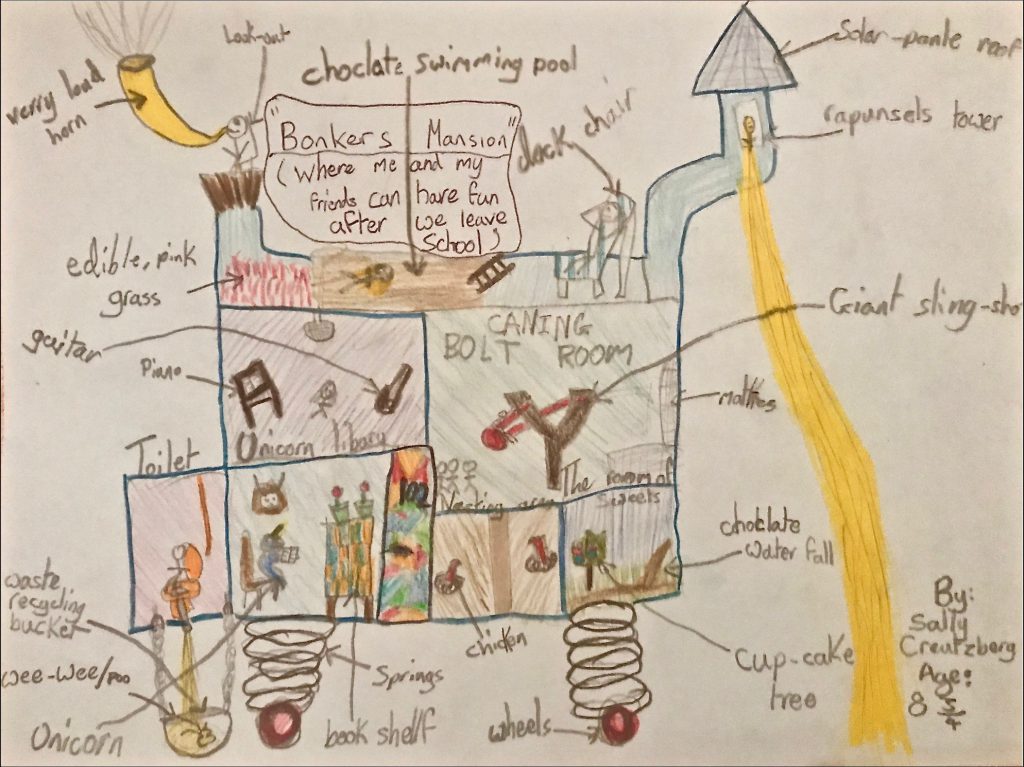 Look-out
verry loud
horn
choclate swimming pool
Solar-panle roof
"Bonkers Mansion"
(where me and my
friends can have fun
after we leave
school)
deck chair
rapunsels tower
edible, pink
grass
guitar
Piano
CANING
BOLT ROOM
Giant sling-sho
Unicorn libary
Toilet
The room of
sweets
choclate
water fall
waste
recycling
bucket
wee-wee/poo
Unicorn
Springs
book shelf
chicken
wheels
cup-cake
tree
By:
Sally
Creutzberg
Age:
8